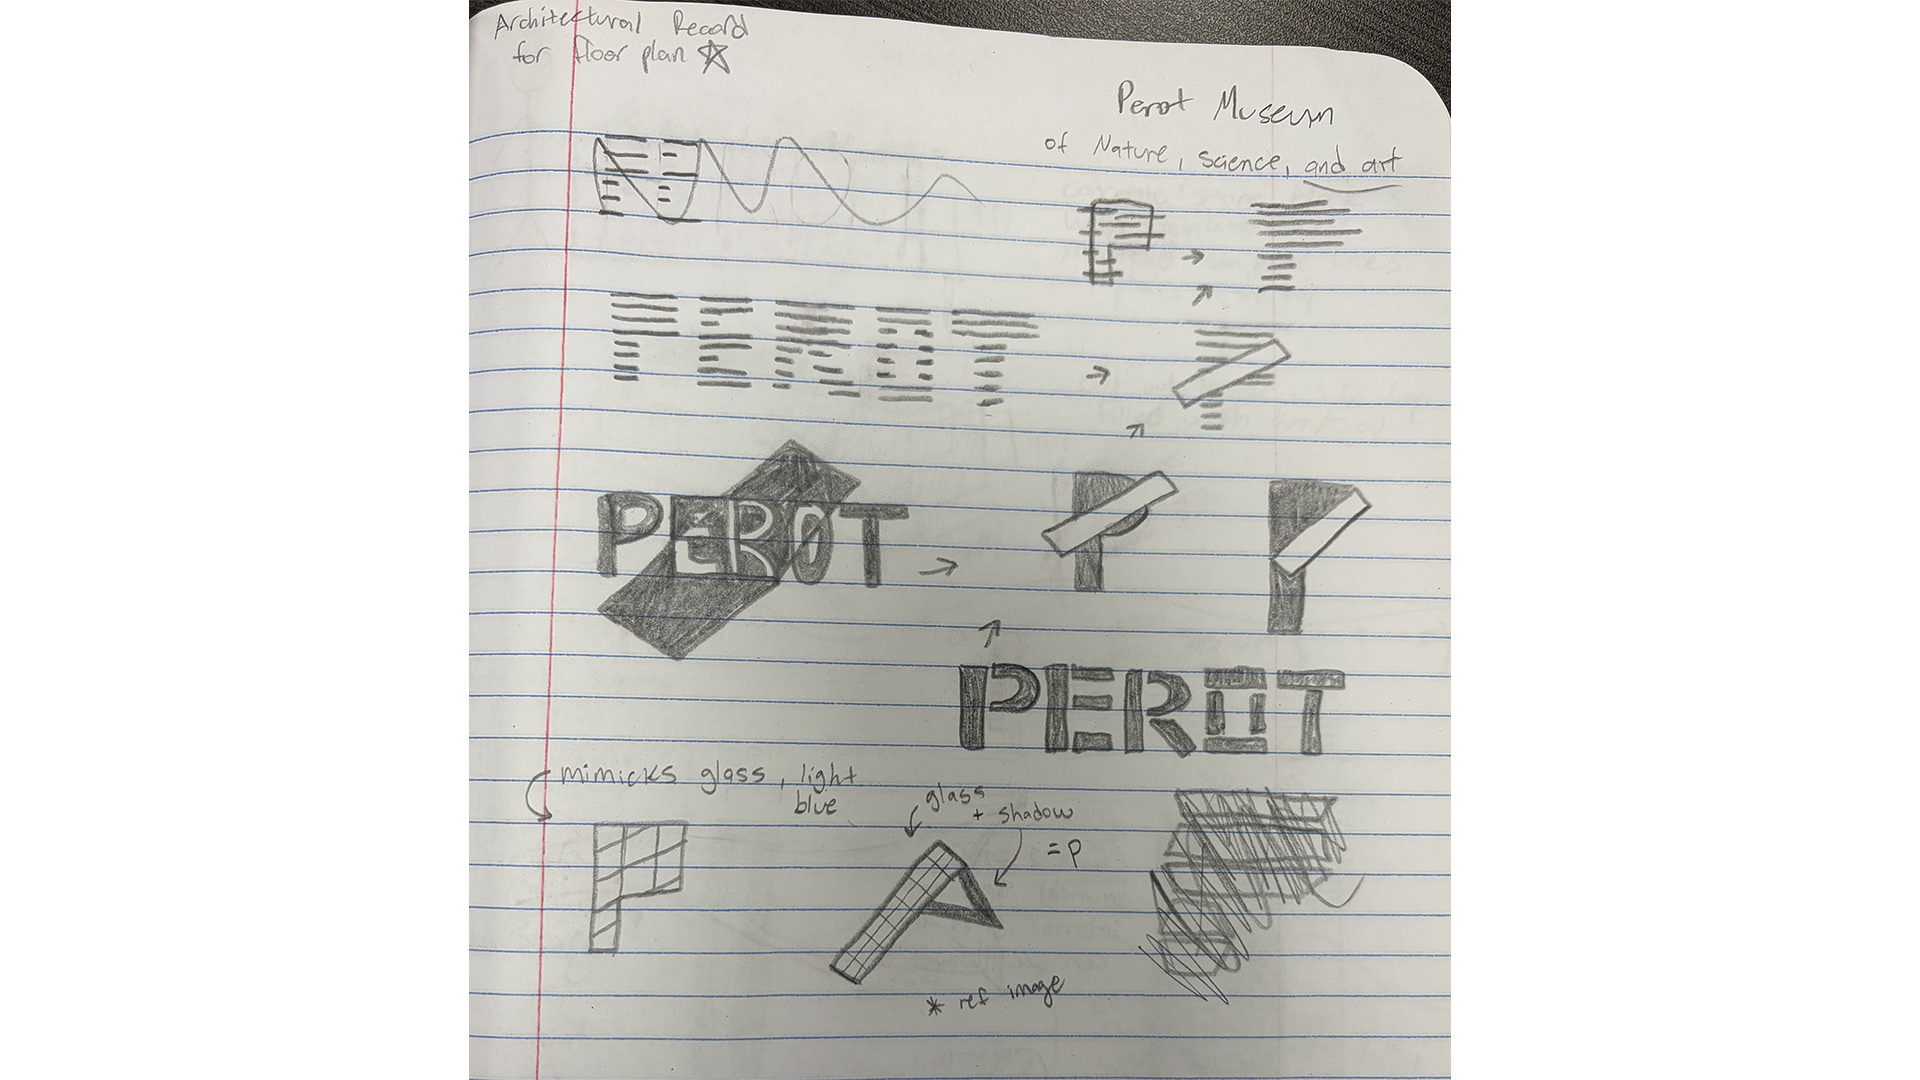 Architectural Record
for floor plan
Perot Museum
of Nature, science, and art
P
PEROT
P
PEROT
P
P
PEROT
mimicks glass, light
blue
glass
+ shadow
= p
P
* ref image